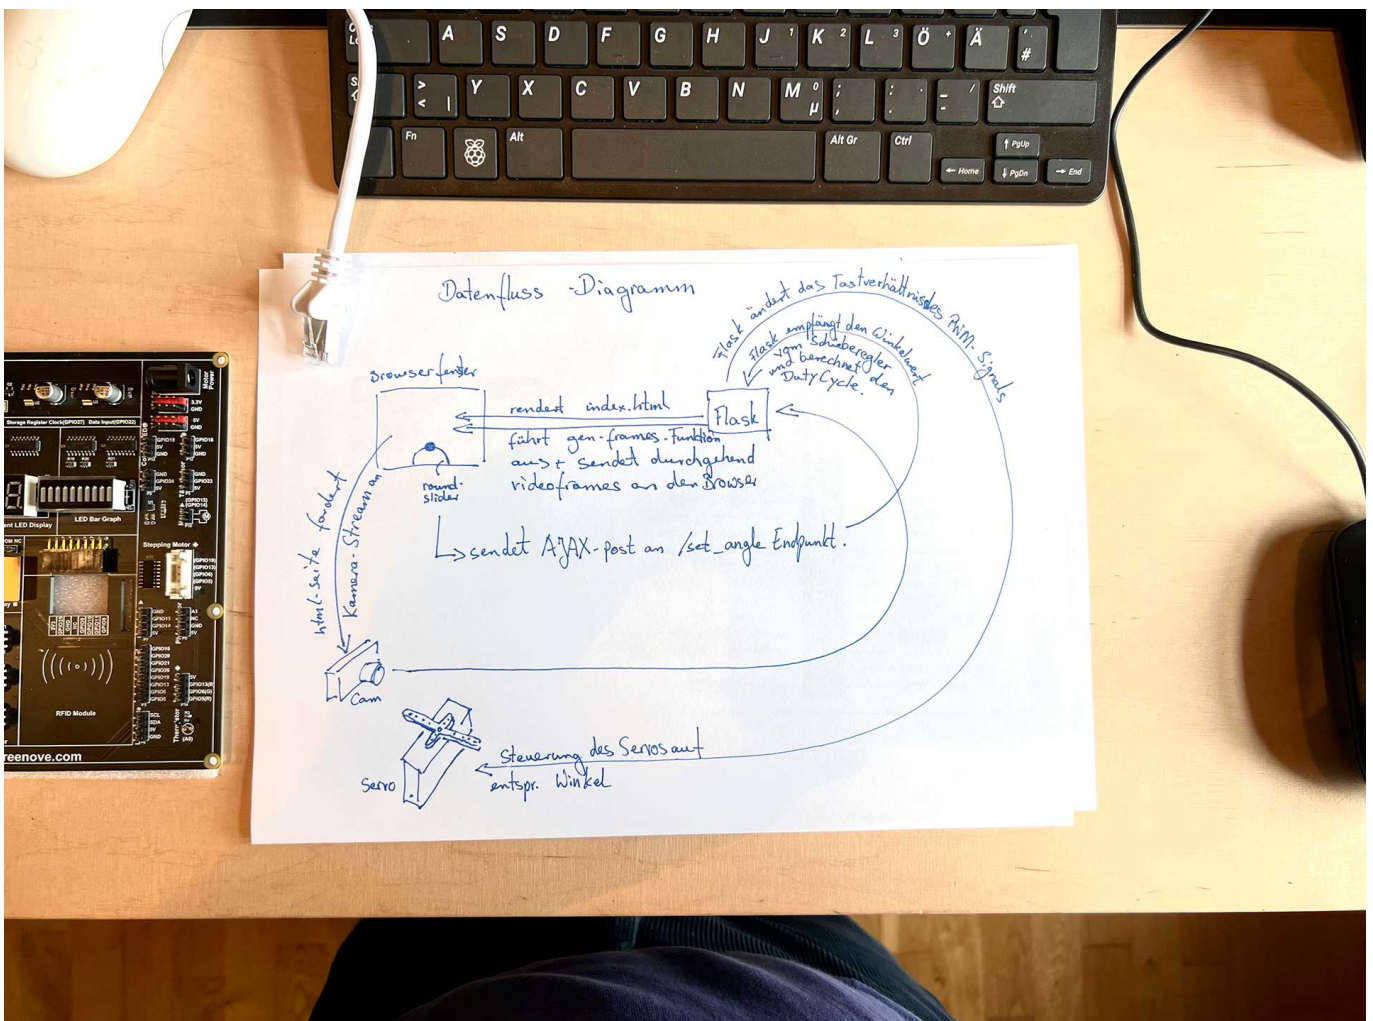 A S D F G H J 1 K 2 L 3 Ö + Ä ' #
> < | Y X C V B N M 0 µ ; , : . _ / - Shift
Fn Alt Alt Gr Ctrl PgUp
Home PgDn End
Datenfluss-Diagramm
Flask ändert das Tastverhältnis des PWM-Signals
Flask empfängt den Winkelwert
vom Schieberegler
und berechnet den
DutyCycle.
Browserfenster
rendert index.html
Flask
führt gen-frames-Funktion
aus + sendet durchgehend
videoframes an den Browser
round-
slider
sendet AJAX-post an /set_angle Endpunkt.
html-seite fordert
Kamera-Stream an
Cam
Steuerung des Servos auf
entspr. Winkel
Servo
Motor
Power
3.3V
GND
5V
GND
Storage Register Clock(GPIO27) Data Input(GPIO22)
LED Bar Graph
ent LED Display
Stepping Motor
RFID Module
SCL
SDA
5V
GND
reenove.com